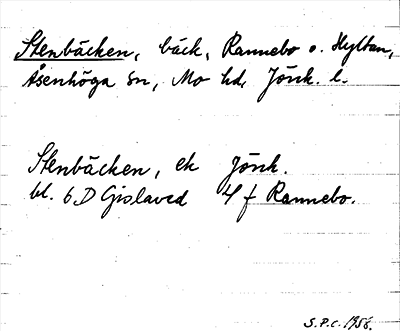 Stenbäcken, bäck, Rannebo o. Hyltan,
Åsenhöga sn, Mo hd, Jönk. l.
Stenbäcken, ek Jönk.
bl. 6 D Gislaved 4 f Rannebo.
S.P.C. 1956.